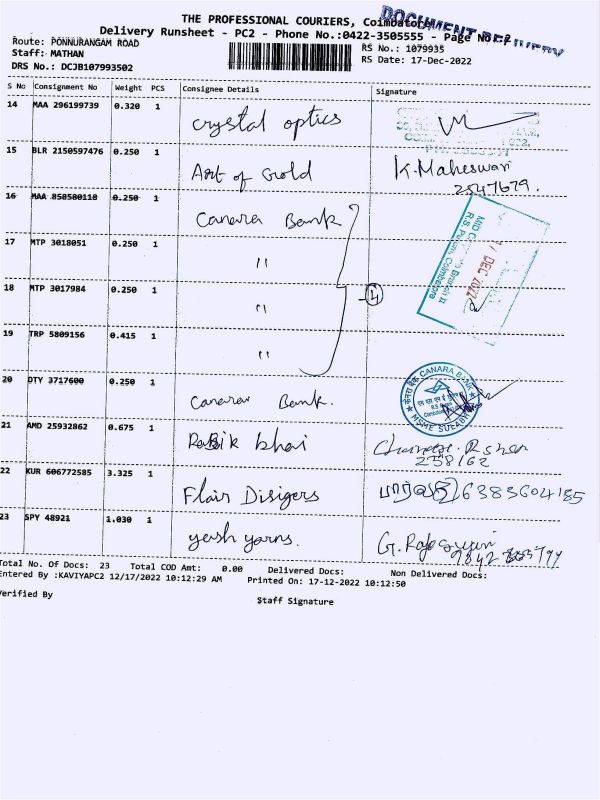 THE PROFESSIONAL COURIERS, Coimbatore
DOCUMENT DELIVERY
Delivery Runsheet - PC2 - Phone No.:0422-3505555 - Page No.:2
Route: PONNURANGAM ROAD
RS No.: 1079935
Staff: MATHAN
RS Date: 17-Dec-2022
DRS No.: DCJB107993502
S No Consignment No Weight PCS Consignee Details Signature
14 MAA 296199739 0.320 1 Crystal optics
15 BLR 2150597476 0.250 1 Art of Gold K. Maheswari
2547679.
16 MAA 858580118 0.250 1 Canara Bank
17 MTP 3018051 0.250 1 "
18 MTP 3017984 0.250 1 " 4
19 TRP 5809156 0.415 1 "
R.S Puram, Coimbatore
DEC 2022
20 DTY 3717600 0.250 1 Canara Bank.
केनरा बैंक CANARA BANK
MSME SULABH
21 AMD 25932862 0.675 1 Rabik bhai
258162
22 KUR 606772585 3.325 1 Flair Disigers 6383604185
23 SPY 48921 1.030 1 yash yarns. G. Raja
Total No. Of Docs: 23 Total COD Amt: 0.00 Delivered Docs: Non Delivered Docs:
Entered By :KAVIYAPC2 12/17/2022 10:12:29 AM Printed On: 17-12-2022 10:12:50
Verified By Staff Signature